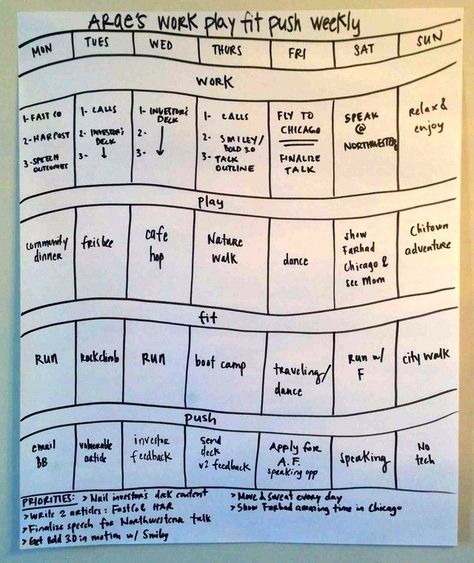 ARAE'S WORK PLAY FIT PUSH WEEKLY
MON TUES WED THURS FRI SAT SUN
WORK
1- FAST CO
2- HAR POST
3- SPEECH OUTCOMES
1- CALLS
2- INVESTOR'S DECK
3-
1- INVESTOR'S DECK
2-
3-
1- CALLS
2- SMILEY/
BOLD 3.0
3- TALK
OUTLINE
FLY TO
CHICAGO
FINALIZE
TALK
SPEAK
@
NORTHWESTERN
Relax &
enjoy
play
community
dinner
frisbee
cafe
hop
Nature
walk
dance
show
Farhad
Chicago &
see Mom
Chitown
adventure
fit
RUN
Rockclimb
RUN
boot camp
traveling/
dance
RUN w/
F
city walk
push
email
BB
vulnerable
article
investor
feedback
send
deck
v2 feedback
Apply for
A.F.
speaking opp
speaking
No
tech
PRIORITIES: > Nail investor's deck content
> Write 2 articles: FastCo & HAR
> Finalize speech for Northwestern talk
> Get Bold 3.0 in motion w/ Smiley
> Move & sweat every day
> Show Farhad amazing time in Chicago